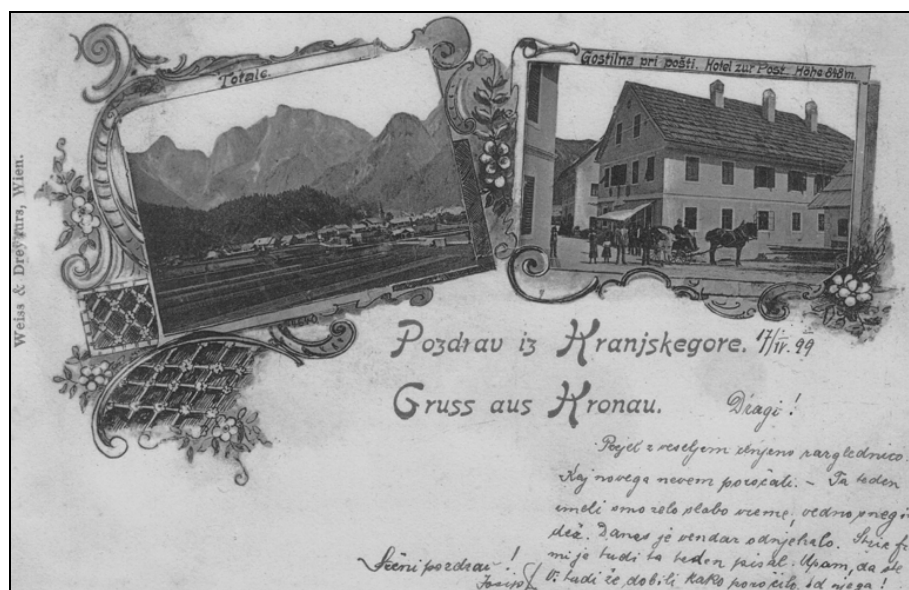 Weiss & Dreyfurs, Wien.
Totale.
Gostilna pri pošti. Hotel zur Post. Höhe 848m.
Pozdrav iz Kranjskegore. 17/IV. 99
Gruss aus Kronau.
Dragi!
z veseljem razglednico.
Kaj novega nevem poročati. - Ta teden
imeli smo zelo slabo vreme, vedno sneg i
dež. Danes je vendar odnjehalo. Stric
mi je tudi ta teden pisal. Upam, da ste
tudi že dobili kako poročilo od njega!
Srčni pozdrav!
Josip